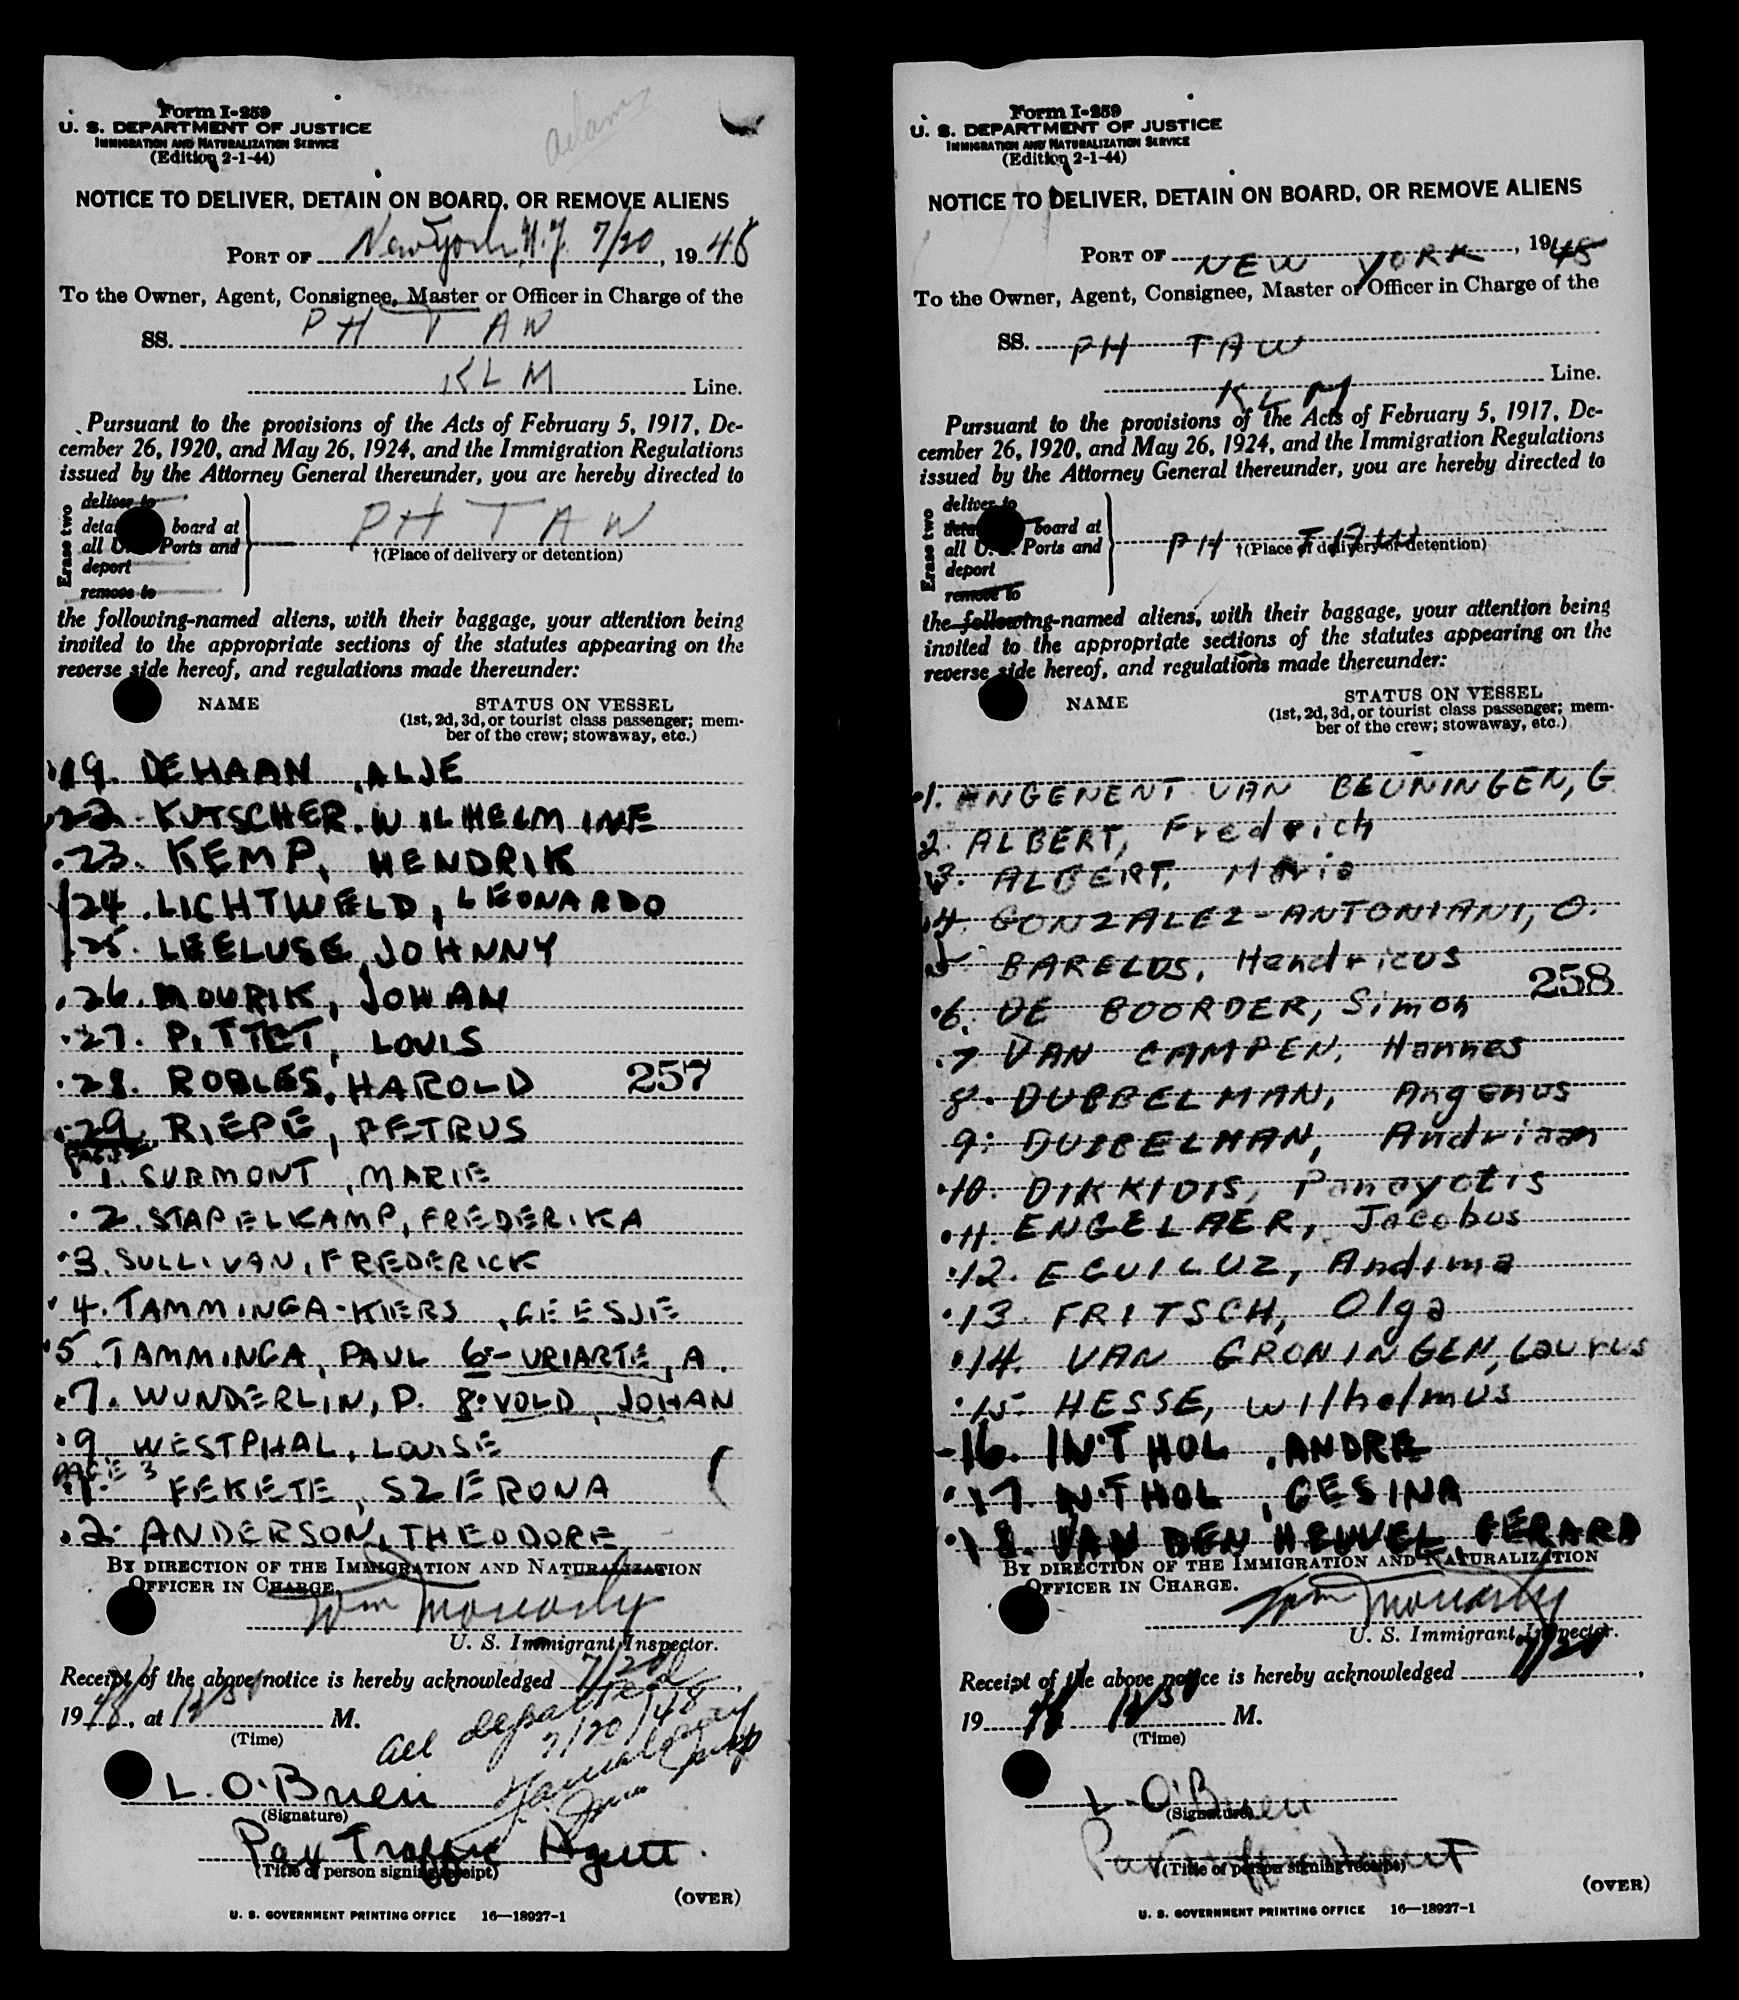 adams
Form I-259
U. S. DEPARTMENT OF JUSTICE
IMMIGRATION AND NATURALIZATION SERVICE
(Edition 2-1-44)
NOTICE TO DELIVER, DETAIN ON BOARD, OR REMOVE ALIENS
PORT OF New York, N.Y. 7/20, 1948
To the Owner, Agent, Consignee, Master or Officer in Charge of the
SS. PH TAW
KLM Line.
Pursuant to the provisions of the Acts of February 5, 1917, De-
cember 26, 1920, and May 26, 1924, and the Immigration Regulations
issued by the Attorney General thereunder, you are hereby directed to
Erase two
deliver to
board at
all U. Ports and
deport
remove to
PH TAW
†(Place of delivery or detention)
the following-named aliens, with their baggage, your attention being
invited to the appropriate sections of the statutes appearing on the
reverse side hereof, and regulations made thereunder:
NAME STATUS ON VESSEL
(1st, 2d, 3d, or tourist class passenger; mem-
ber of the crew; stowaway, etc.)
19. DEHAAN, ALJE
22. KUTSCHER, WILHELMINE
23. KEMP, HENDRIK
24. LICHTWELD, LEONARDO
25. LEELUSE, JOHNNY
26. MOURIK, JOHAN
27. PITTET, LOUIS
28. ROBLES, HAROLD 257
29. RIEPE, PETRUS
1. SURMONT, MARIE
2. STAPELKAMP, FREDERIKA
3. SULLIVAN, FREDERICK
4. TAMMINGA-KIERS, GEESJE
5. TAMMINGA, PAUL 6- URIARTE, A.
7. WUNDERLIN, P. 8. VOLD, JOHAN
9 WESTPHAL, LOUISE
PAGE 3
1. FEKETE, SZERONA
2. ANDERSON, THEODORE
BY DIRECTION OF THE IMMIGRATION AND NATURALIZATION
OFFICER IN CHARGE.
Tom Moriarty
U. S. Immigrant Inspector.
Receipt of the above notice is hereby acknowledged 7/20,
1948, at M.
(Time)
all departed
7/20/48
L. O'Brien
(Signature)
Pax Traffic Agent.
(Title of person signing receipt)
(OVER)
U. S. GOVERNMENT PRINTING OFFICE 16—18927-1
Form I-259
U. S. DEPARTMENT OF JUSTICE
IMMIGRATION AND NATURALIZATION SERVICE
(Edition 2-1-44)
NOTICE TO DELIVER, DETAIN ON BOARD, OR REMOVE ALIENS
PORT OF NEW YORK, 1948
To the Owner, Agent, Consignee, Master or Officer in Charge of the
SS. PH TAW
KLM Line.
Pursuant to the provisions of the Acts of February 5, 1917, De-
cember 26, 1920, and May 26, 1924, and the Immigration Regulations
issued by the Attorney General thereunder, you are hereby directed to
Erase two
deliver to
board at
all U. Ports and
deport
remove to
PH TAW
†(Place of delivery or detention)
the following-named aliens, with their baggage, your attention being
invited to the appropriate sections of the statutes appearing on the
reverse side hereof, and regulations made thereunder:
NAME STATUS ON VESSEL
(1st, 2d, 3d, or tourist class passenger; mem-
ber of the crew; stowaway, etc.)
1. ANGENENT VAN BEUNINGEN, G
2. ALBERT, Fredrich
3. ALBERT, Maria
4. GONZALEZ-ANTONIANI, O.
5. BARELDS, Hendricus
258
6. DE BOORDER, Simon
7 VAN CAMPEN, Hannes
8. DUBBELMAN, Angenus
9. DUBBELMAN, Andriaan
10. DIKKIDIS, Panayotis
11. ENGELAER, Jacobus
12. EGUILUZ, Andima
13. FRITSCH, Olga
14. VAN GRONINGEN, Laurus
15. HESSE, Wilhelmus
16. IN'T HOL, ANDRE
17. IN'T HOL, GESINA
18. VAN DEN HEUVEL, GERARD
BY DIRECTION OF THE IMMIGRATION AND NATURALIZATION
OFFICER IN CHARGE.
Tom Moriarty
U. S. Immigrant Inspector.
Receipt of the above notice is hereby acknowledged 7/20,
1948 M.
(Time)
L. O'Brien
(Signature)
Pax Traffic Agent
(Title of person signing receipt)
(OVER)
U. S. GOVERNMENT PRINTING OFFICE 16—18927-1